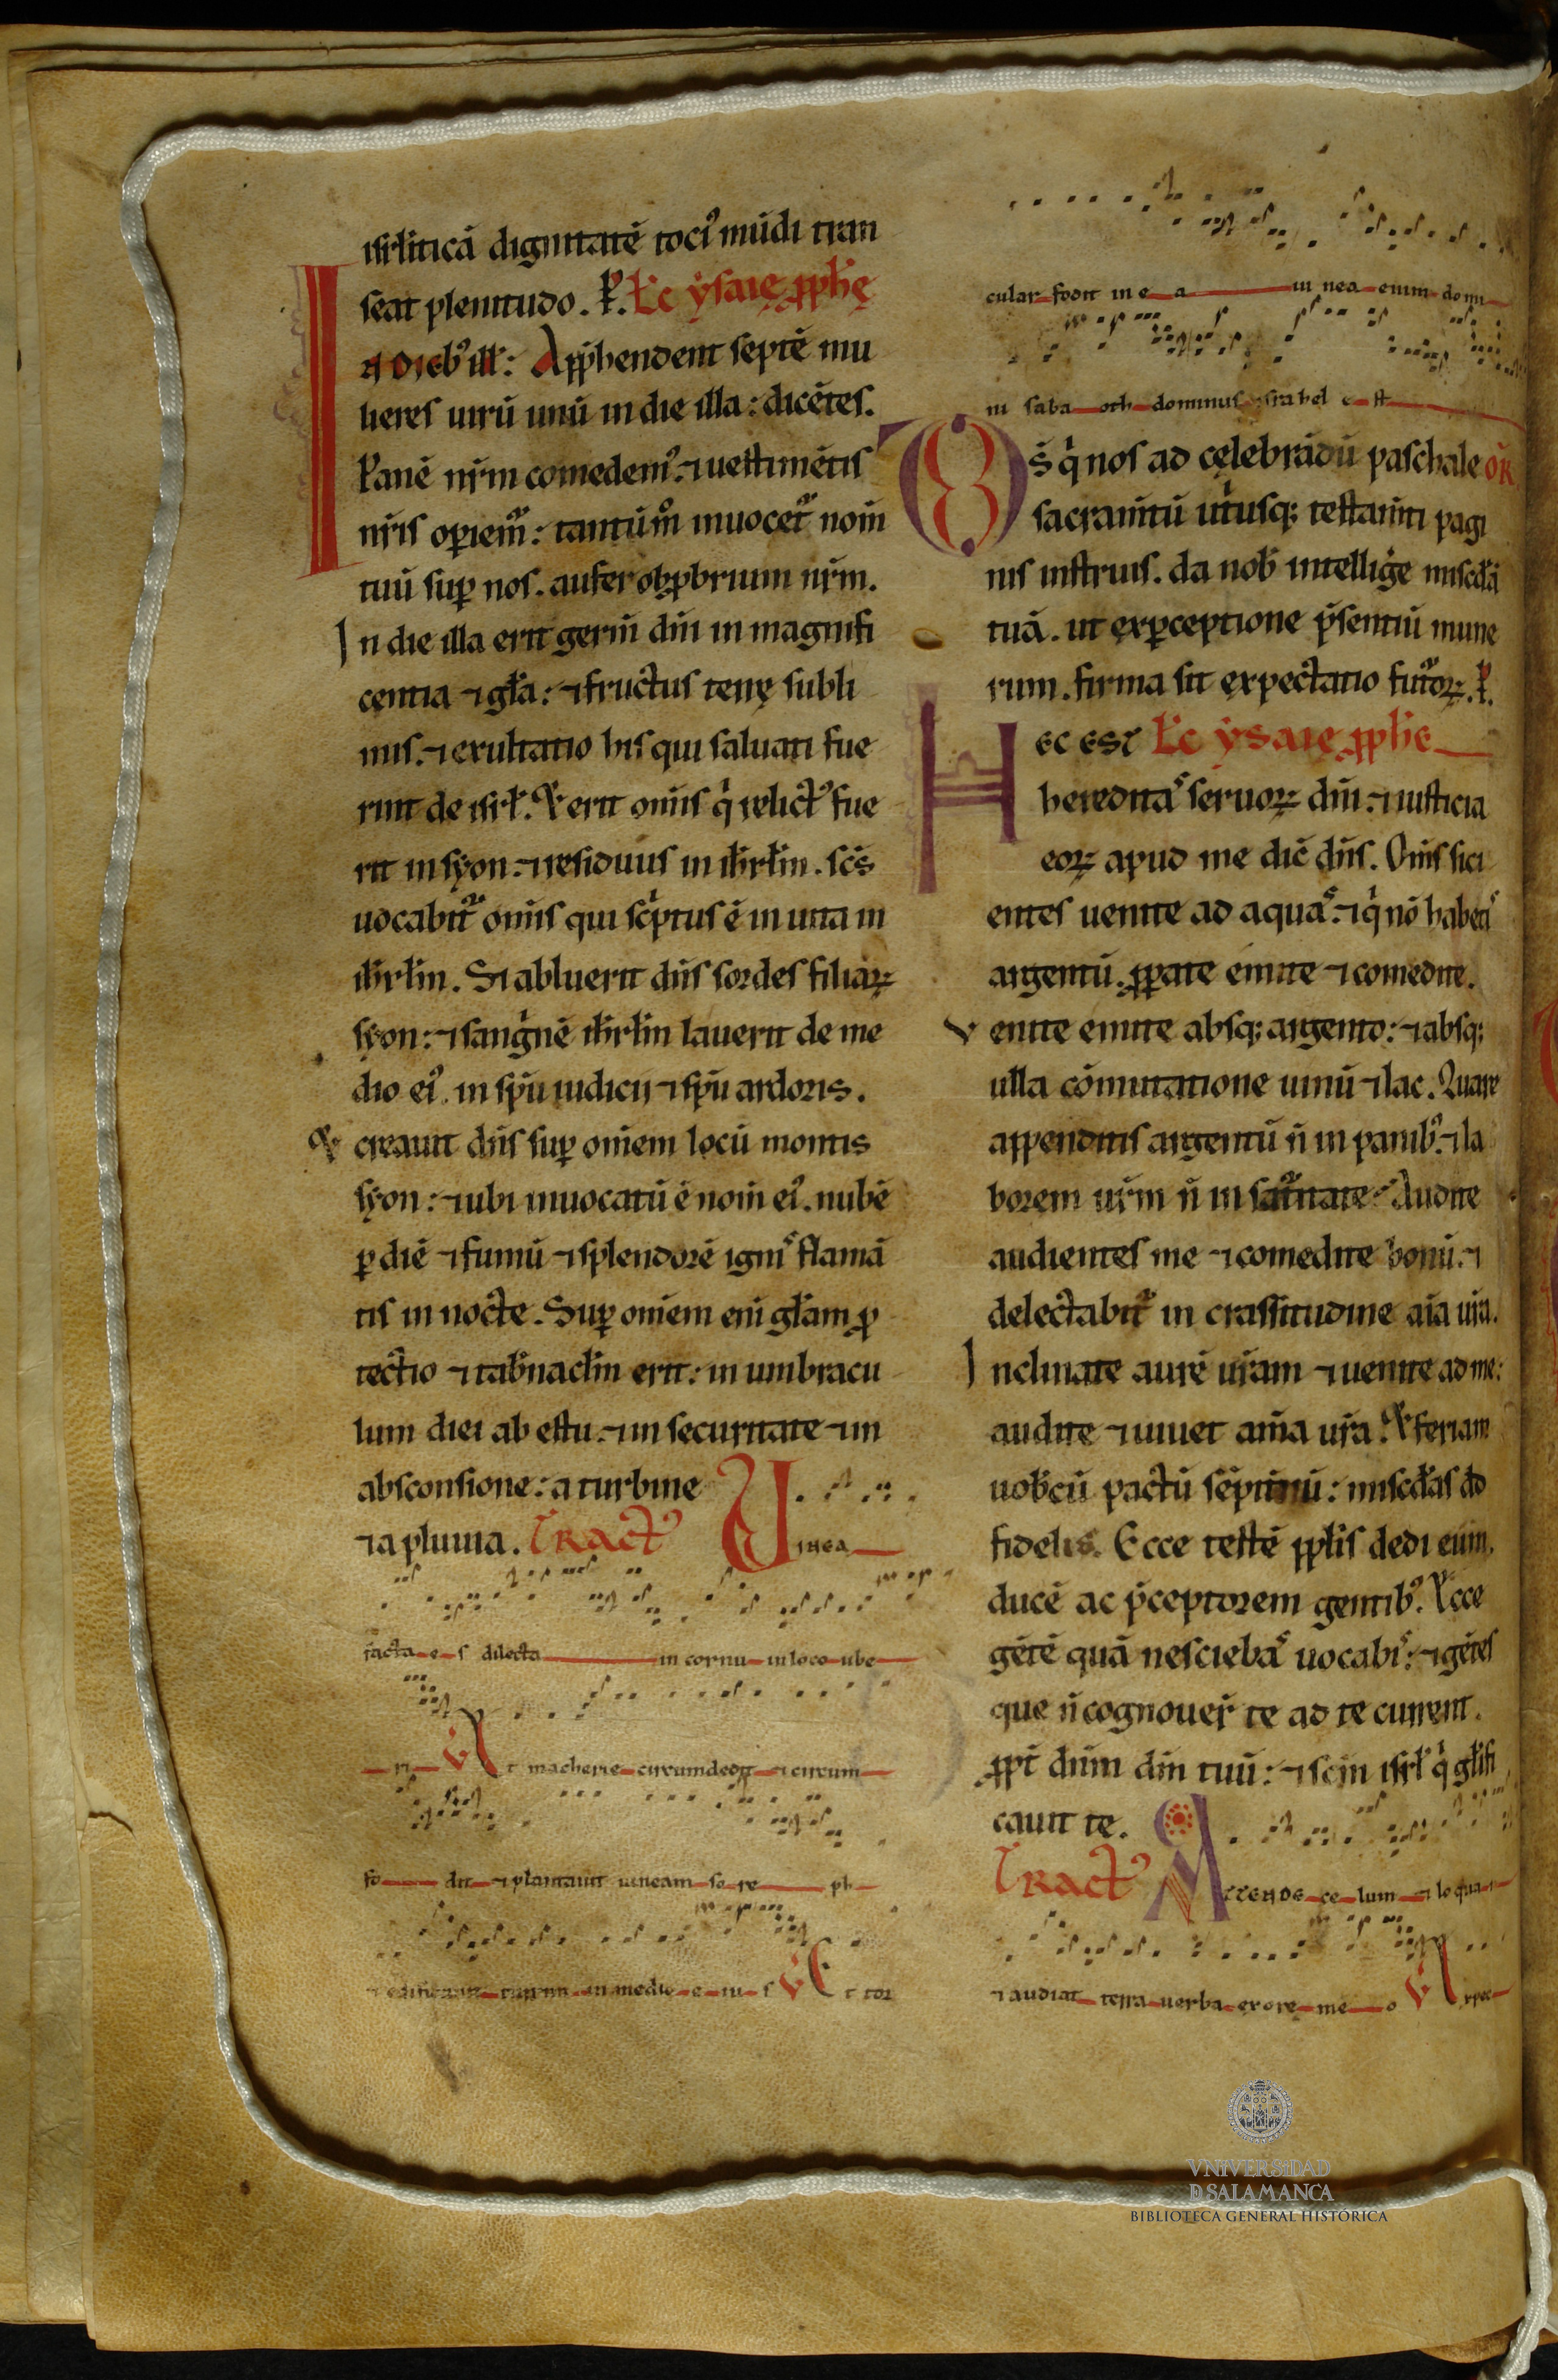 isrliticā dignitatē toci᷒ mūdi tran
seat plenitudo. P̄. Łc ẏsaię ꝓph̄ę
IN DIEb᷒ ill̄: App̄hendent septē mu
lieres uirū unū in die illa: dicētes.
Panē nr̄m comedem᷒: ⁊ uestimētis
nr̄is oꝑiem̄: tantūm̊ inuocet᷑ nom̄
tuū suꝑ nos. aufer obꝓbrium nr̄m.
In die illa erit germ̄ dn̄i in magnifi
centia ⁊ gl̄a: ⁊ fructus terrę subli
mis. ⁊ exultatio his qui saluati fue
rint de isrł. Et erit om̄is q̇ relict᷒ fue
rit in syon: ⁊ residuus in ih̄rłm. sc̄s
uocabit᷑ om̄is qui sc̓ptus ē in uita in
ih̄rłm. Si abluerit dn̄s sordes filiaꝝ
syon: ⁊ sang̓nē ih̄rłm lauerit de me
dio ei᷒. in sp̄u iudicii ⁊ sp̄u ardoris.
Et creauit dn̄s suꝑ om̄em locū montis
syon: ⁊ ubi inuocatū ē nom̄ ei᷒. nubē
ꝑ diē ⁊ fumū ⁊ splendorē igniˢ flamā
tis in nocte. Suꝑ om̄em eni gl̄am ꝓ
tectio ⁊ tab̄nacłm erit: in umbracu
lum diei ab estu. ⁊ in securitate ⁊ in
absconsione: a turbine
⁊ a pluuia. Tract᷒ Uinea
facta e s dilecta in cornu in loco ube
ri V Et macherie circumdedit ⁊ circum
fo dit ⁊ plantauit uineam so re ph
⁊ edificauit turrim in medio e iu s V Et tor
cular fodit in e a ui nea enim domi
ni saba oth dominus israhel e st
Ds̄ q̇ nos ad cęlebrādū paschale OR̄
sacram̄tū ut̓usq; testam̄ti pagi
nis instruis. da nob̄ intellig̓e miscd̄ā
tuā. ut ex ꝑceptione p̄sentiū mune
rum. firma sit expectatio fut᷑oꝝ. P̄.
HEC EST Łc ẏsaię ꝓph̄e
hereditaˢ seruoꝝ dn̄i: ⁊ iusticia
eoꝝ apud me dic̄ dn̄s. Om̄s sici
entes uenite ad aquaˢ: ⁊ q̇ nō habetiˢ
argentū. ꝓꝑate emite ⁊ comedite.
Venite emite absq; argento: ⁊ absq;
ulla cōmutatione uinū ⁊ lac. Quare
appenditis argentū n̄ in panib᷒: ⁊ la
borem ur̄m n̄ in sat᷑itate: Audite
audientes me ⁊ comedite bonū: ⁊
delectabit᷑ in crassitudine aīa ur̄a.
Inclinate aurē ur̄am ⁊ uenite ad me:
audite ⁊ uiuet am̄a ur̄a. Et feriam
uob̄cū pactū sēpit̄nū: miscd̄as dd
fidelis. Ecce testē ppłis dedi eum.
ducē ac p̄ceptorem gentib᷒. Ecce
gētē quā nesciebaˢ uocabiˢ: ⁊ gētes
que n̄ cognouer̄ te ad te current.
ꝓpt̄ dn̄m dm̄ tuū: ⁊ sc̄m isrł q̇ gl̄ifi
cauit te.
Tract᷒ ATTENDE ce lum ⁊ loqua r
⁊ audiat terra uerba ex ore me o V Expec
VNiVERSiDAD
D SALAMANCA
BIBLIOTECA GENERAL HISTÓRICA